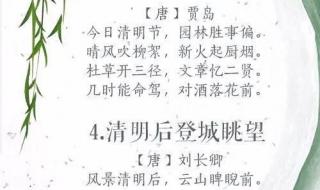 【唐】贾岛
今日清明节，园林胜事偏。
晴风吹柳絮，新火起厨烟。
杜草开三径，文章忆二贤。
几时能命驾，对酒落花前。
4.清明后登城眺望
【唐】刘长卿
风景清明后，云山睥睨前。